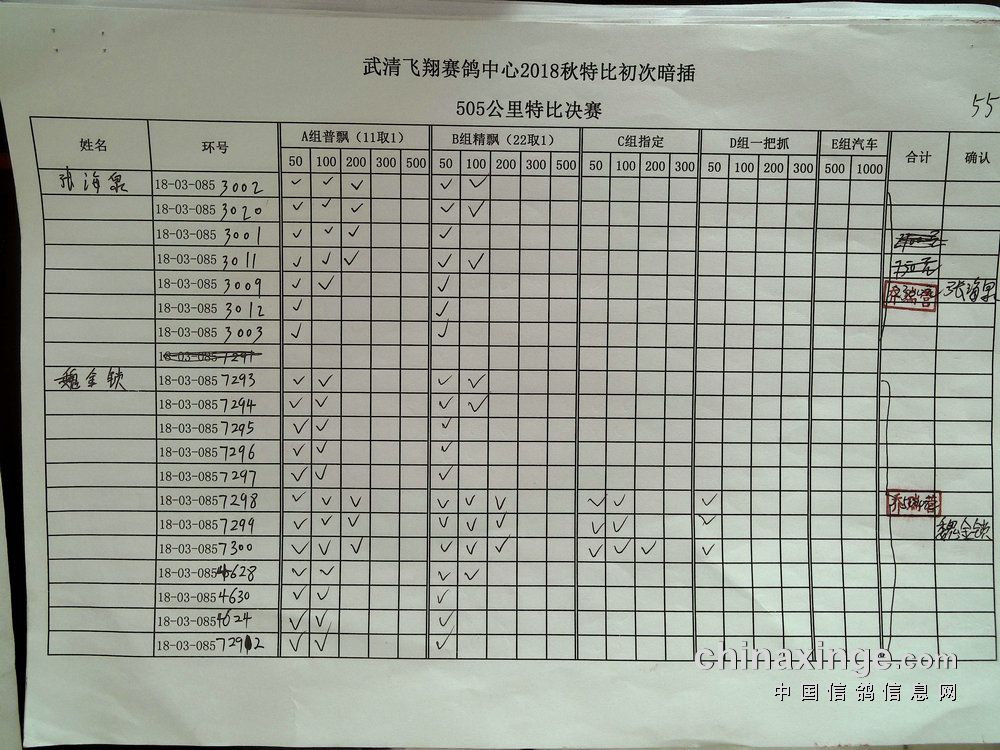 武清飞翔赛鸽中心2018秋特比初次暗插
505公里特比决赛
55
姓名 环号 A组普飘（11取1） B组精飘（22取1） C组指定 D组一把抓 E组汽车 合计 确认
50 100 200 300 500 50 100 200 300 500 50 100 200 300 50 100 200 300 500 1000
张海泉 18-03-085 3002 ✓ ✓ ✓ ✓ ✓
18-03-085 3020 ✓ ✓ ✓ ✓ ✓
18-03-085 3001 ✓ ✓ ✓ ✓
18-03-085 3011 ✓ ✓ ✓ ✓ ✓
18-03-085 3009 ✓ ✓ ✓ 张海泉
18-03-085 3012 ✓ ✓
18-03-085 3003 ✓ ✓
18-03-085 7291
魏金锁 18-03-085 7293 ✓ ✓ ✓ ✓
18-03-085 7294 ✓ ✓ ✓ ✓
18-03-085 7295 ✓ ✓ ✓
18-03-085 7296 ✓ ✓ ✓
18-03-085 7297 ✓ ✓ ✓
18-03-085 7298 ✓ ✓ ✓ ✓ ✓ ✓ ✓ ✓ ✓
18-03-085 7299 ✓ ✓ ✓ ✓ ✓ ✓ ✓ ✓ ✓ 魏金锁
18-03-085 7300 ✓ ✓ ✓ ✓ ✓ ✓ ✓ ✓ ✓ ✓
18-03-085 4628 ✓ ✓ ✓ ✓
18-03-085 4630 ✓ ✓ ✓
18-03-085 4624 ✓ ✓ ✓
18-03-085 72912 ✓ ✓ ✓
chinaxinge.com
中国信鸽信息网